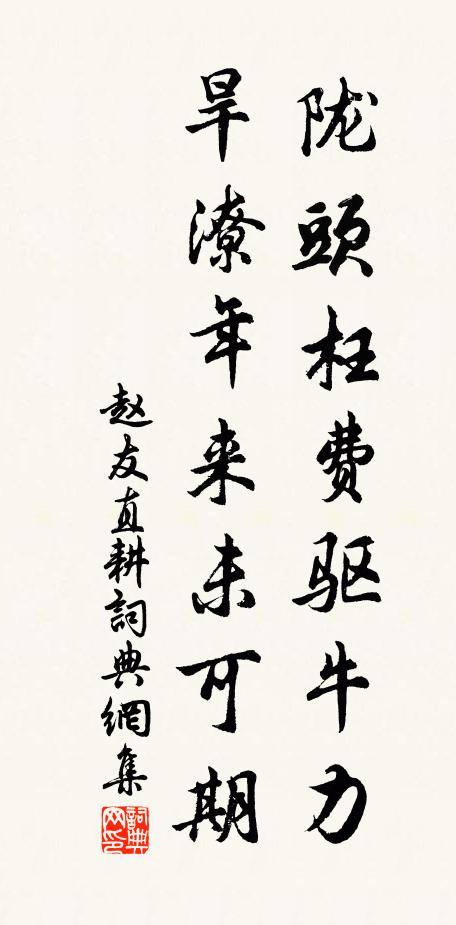 陇頭枉费驱牛力
旱潦年来未可期
赵友直耕詞典網集
詞典网印